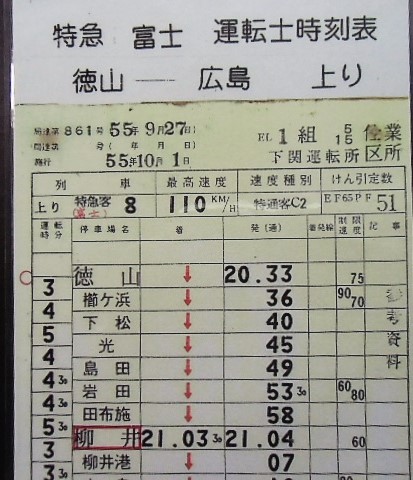 特急 富士 運転士時刻表
徳山 ― 広島 上り
861号 55年9月27日
(年 月 日)
施行 55年10月1日
EL 1組 5/15 仕業
下関運転所
列 車 最高速度 速度種別 けん引定数
上り 特急客(富士) 8 110 KM/H 特通客C2 EF65PF 51
運転時分 停車場名 着 発(通) 着発線 制限速度 記事
徳山 ↓ 20.33 75
3
櫛ケ浜 ↓ 36 90 70
4
下松 ↓ 40
5
光 ↓ 45
4
島田 ↓ 49
4 30
岩田 ↓ 53 30 60 80
4 30
田布施 ↓ 58
5 30
柳井 21.03 30 21.04 60
3
柳井港 ↓ 07
3 30
参考資料